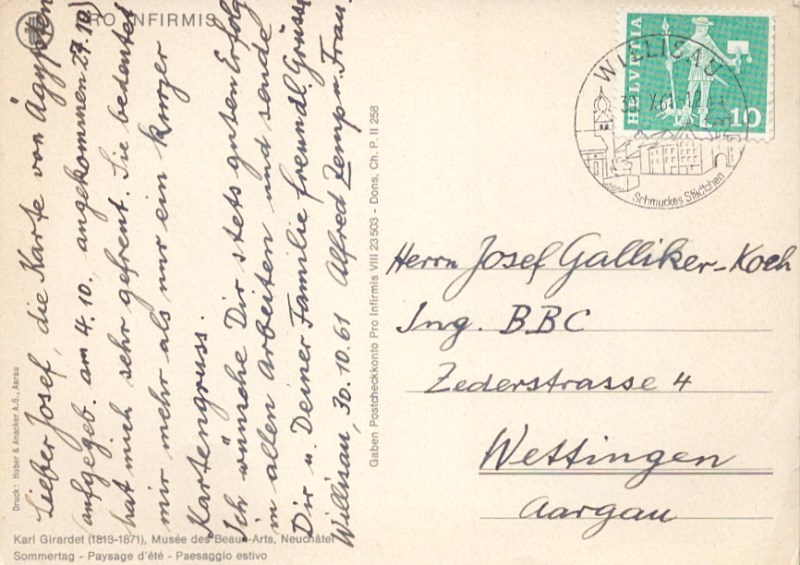 PRO INFIRMIS
Lieber Josef, die Karte von Ägypten
aufgegeb. am 4.10. angekommen 27.10)
hat mich sehr gefreut. Sie bedeutet
mir mehr als nur ein kurzer
Kartengruss.
Ich wünsche Dir stets guten Erfolg
in allen Arbeiten und sende
Dir u. Deiner Familie freundl. Grüsse
Willisau, 30.10.61 Alfred Zemp u. Frau.
Druck: Huber & Anacker A.G., Aarau
Karl Girardet (1813-1871), Musée des Beaux-Arts, Neuchâtel
Sommertag - Paysage d'été - Paesaggio estivo
Gaben Postcheckkonto Pro Infirmis VIII 23503 - Dons, Ch. P. II 258
HELVETIA
10
WILLISAU
Schmuckes Städtchen
Herrn Josef Galliker-Koch
Ing. BBC
Zederstrasse 4
Wettingen
Aargau